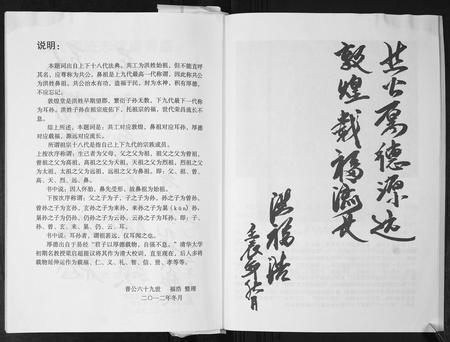 说明：
本题词出自上下十八代法典。共工为洪姓始祖，但不能直呼
其名，应尊称为共公，鼻祖是上九代最高一代称谓，因此称共公
为洪姓鼻祖，共公治水有功，造福于民，封为水神，积有厚德，
不应忘记。
敦煌堂是洪姓早期望郡，繁衍子孙无数，下九代最下一代称
为耳孙，洪姓子孙在祖宗庇佑下，托祖宗的福，世代荣昌流长。
综上所述，本题词是：共工对应敦煌，鼻祖对应耳孙，厚德
对应载福，源远对应流长。
所谓祖宗十八代是指自己上下九代的宗族成员。
上按次序称谓：生己者为父母，父之父为祖，祖父之父为曾祖，
曾祖之父为高祖，高祖之父为天祖，天祖之父为烈祖，烈祖之父
为太祖，太祖之父为远祖，远祖之父为鼻祖。即：父、祖、曾、
高、天、烈、远、鼻。
书中说：因人怀胎，鼻先受形，故鼻祖为始祖。
下按次序称谓：父之子为子，子之子为孙，孙之子为曾孙，
曾孙之子为玄孙，玄孙之子为来孙，来孙之子为晜（kūn）孙，
晜孙之子为仍孙，仍孙之子为云孙，云孙之子为耳孙。即：子，
孙、曾、玄、来、晜、仍、云、耳。
书中说：耳孙者，谓祖甚远，仅耳闻之也。
厚德出自于易经“君子以厚德载物，自强不息。”清华大学
初期名教授梁启超提议将其作为清大校训，直至现在，后人多将
载物延伸运作为载福、仁、义、礼、智、信、誉、孝等等。
普公六十九世 福浩 整理
二〇一二年冬月
共公厚德源远
敦煌载福流长
洪福浩
壬辰年冬月